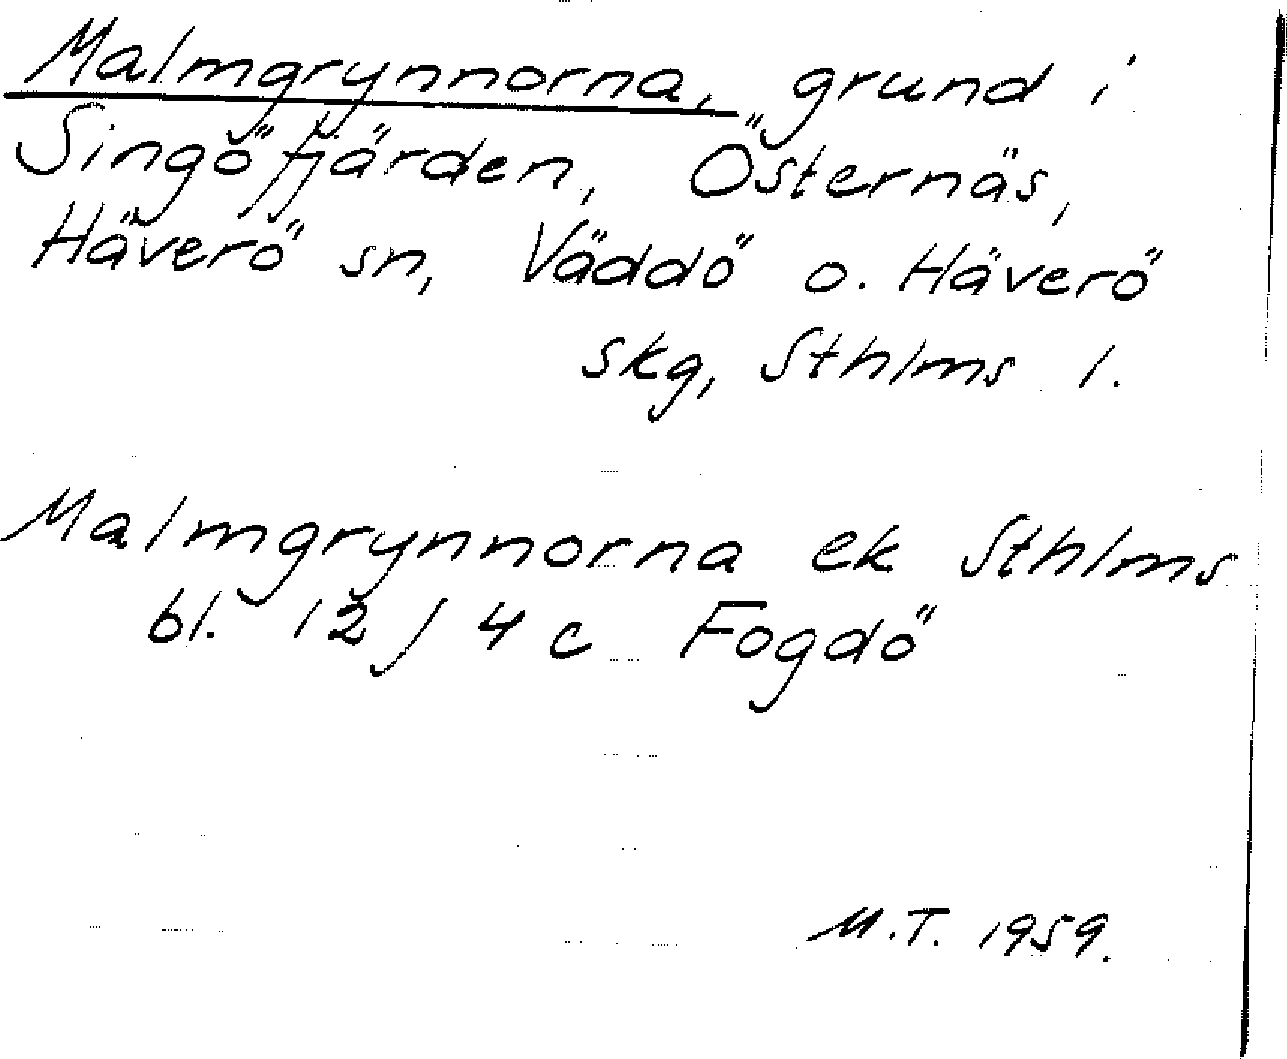 Malmgrynnorna, grund i
Singöfjärden, Östernäs,
Häverö sn, Väddö o. Häverö
skg, Sthlms l.
Malmgrynnorna ek Sthlms
bl. 12 / 4 c Fogdö
M.T. 1959.